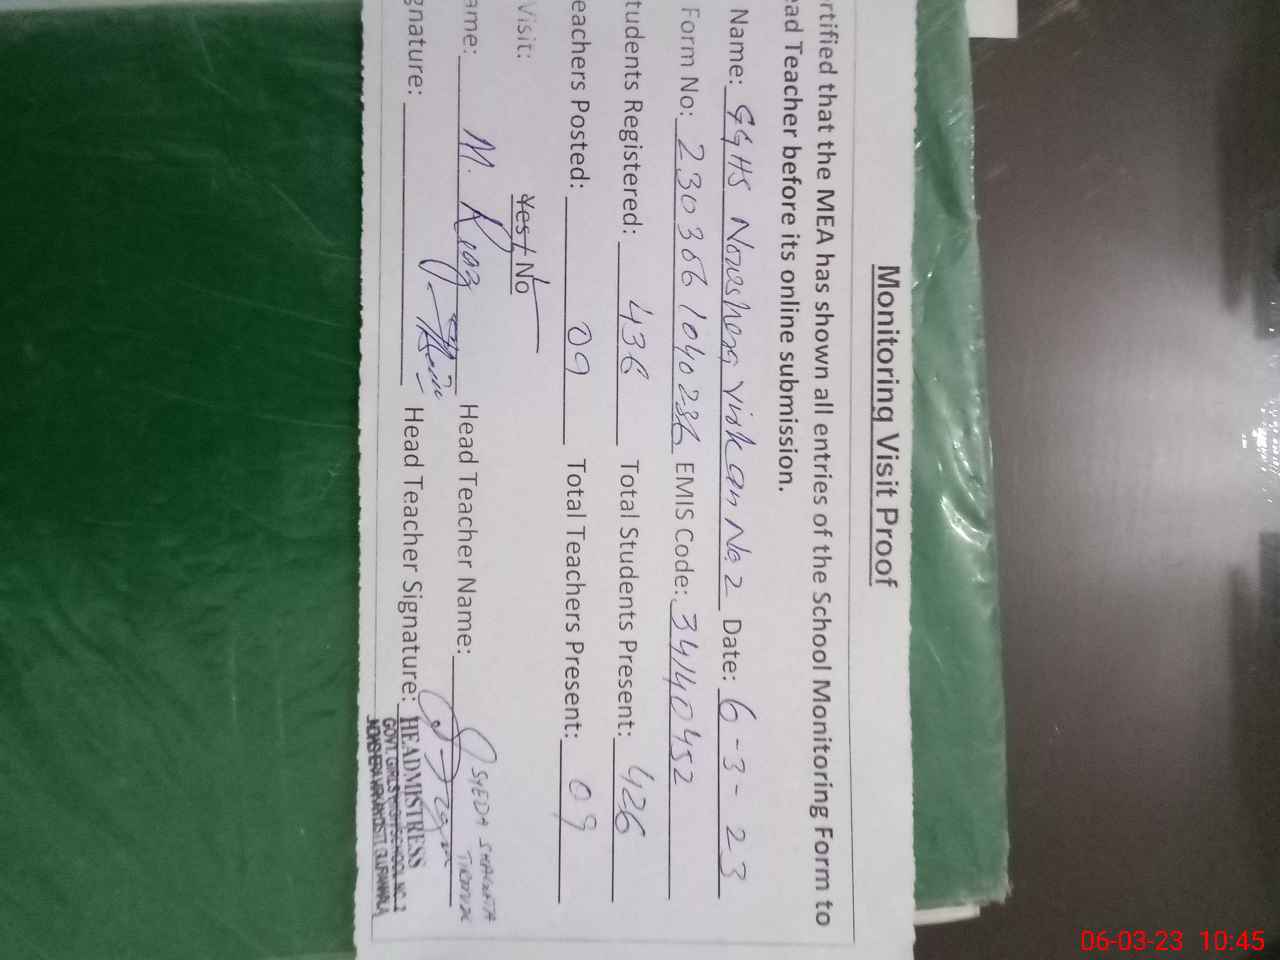 Monitoring Visit Proof
rtified that the MEA has shown all entries of the School Monitoring Form to
ead Teacher before its online submission.
Name: GGHS Nowshera Virkan No 2 Date: 6-3-23
Form No: 2303061040286 EMIS Code: 34140452
tudents Registered: 436 Total Students Present: 426
eachers Posted: 09 Total Teachers Present: 09
Visit: Yes / No
ame: M. Riaz Head Teacher Name: SYEDA
gnature: Head Teacher Signature:
HEADMISTRESS
GOVT. GIRLS HIGH SCHOOL NO. 2
06-03-23 10:45